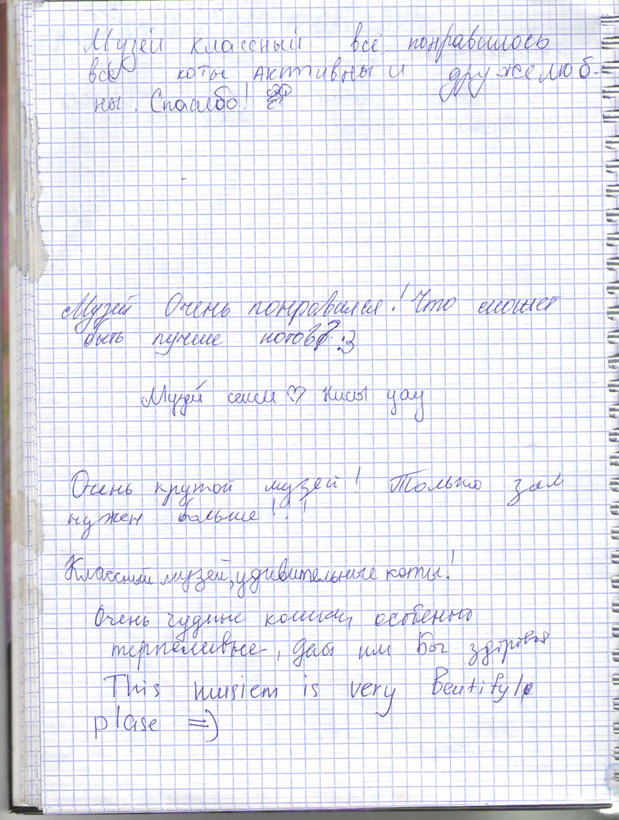 Музей классный всё понравилось
все коты активны и дружелюб-
ны. Спасибо!
Музей Очень понравился! Что может
быть лучше котов? :3
Музей секси ♡ кисы цау
Очень крутой музей! Только зал
нужен больше!!!
Классный музей, удивительные коты!
Очень чудные кошки, особенно
терпеливые, дай им Бог здоровья
This musiem is very Beutifyl
plase =)